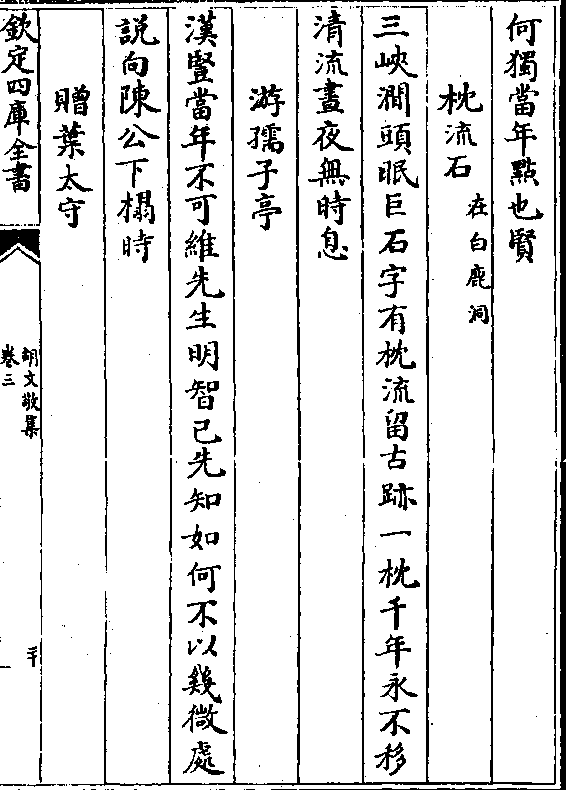 何獨當年點也賢
枕流石 在白鹿洞
三峽澗頭眠巨石字有枕流留古跡一枕千年永不移
清流晝夜無時息
游孺子亭
漢豎當年不可維先生明智已先知如何不以幾微處
說向陳公下榻時
贈葉太守
欽定四庫全書
胡文敬集
卷三
三十